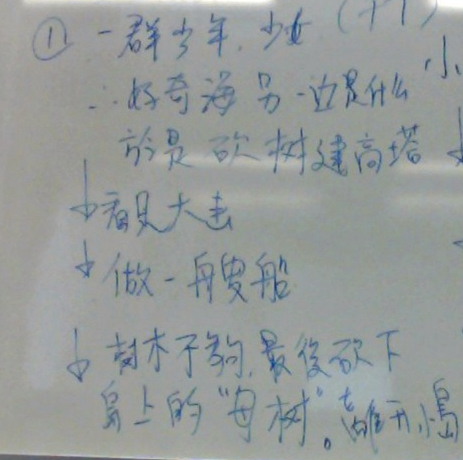 ① 一群少年、少女 (十1)
∴好奇海另一边是什么 小
於是砍树建高塔
↓看見大击
↓做一艘船
↓树木不夠,最後砍下
島上的“母树”。離开小島